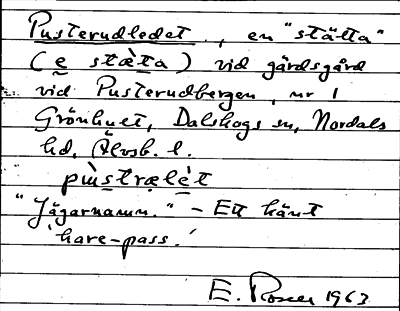 Pusterudledet, en "stätta"
(e stæ̀ta) vid gärdsgård
vid Pusterudbergen, nr 1
Grönhuet, Dalskogs sn, Nordals
hd, Älvsb. l.
pùstrælèt
"Jägarnamn." – Ett känt
'hare-pass.'
E. 1963